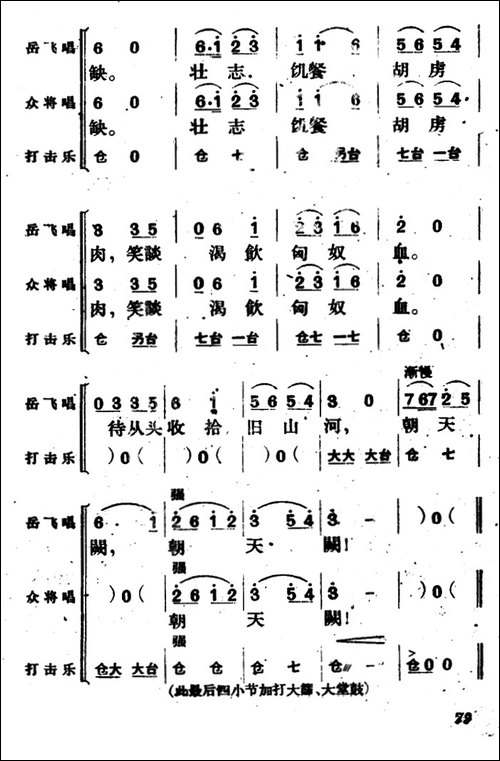 岳飞唱 6 0 | 6·i 2 3 | i i· 6 | 5 6 5 4 |
缺。 壮志 饥餐 胡虏
众将唱 6 0 | 6·i 2 3 | i i 6 | 5 6 5 4 |
缺。 壮志 饥餐 胡虏
打击乐 仓 0 | 仓 七 | 仓 另台 | 七台 一台 |
岳飞唱 3 3 5 | 0 6 i | 2 3 i 6 | 2 0 |
肉，笑談 渴飲 匈奴 血。
众将唱 3 3 5 | 0 6 i | 2 3 i 6 | 2 0 |
肉，笑談 渴飲 匈奴 血。
打击乐 仓 另台 | 七台 一台 | 仓七 一七 | 仓 0 |
渐慢
岳飞唱 0 3 3 5 | 6 i | 5 6 5 4 | 3 0 | 7 6 7 2 5 |
待从头 收拾 旧山 河， 朝天
打击乐 )0( | )0( | )0( | 大大 大台 | 仓 七 |
强
岳飞唱 6· i | 2 6 i 2 | 3 5 4 | 3 - | )0( ‖
闕， 朝 天 闕!
强
众将唱 )0( | 2 6 i 2 | 3 5 4 | 3 - | )0( ‖
朝 天 闕!
强
打击乐 仓大 大台 | 仓 仓 | 仓 七 | 仓 - | 仓 0 0 ‖
(此最后四小节加打大鑼、大堂鼓)
79